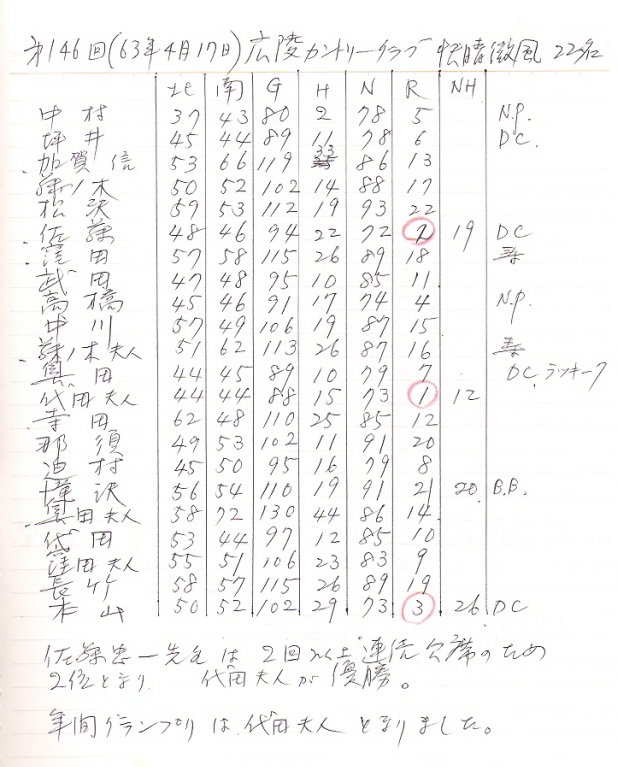 第146回(63年4月17日)広陵カントリークラブ 快晴微風 22名
北 南 G H N R NH
中村 37 43 80 2 78 5 N.P.
坪井 45 44 89 11 78 6 DC.
加賀 信 53 66 119 33 86 13
藤ノ木 50 52 102 14 88 17
松沢 59 53 112 19 93 22
佐藤 48 46 94 22 72 2 19 DC
窪田 57 58 115 26 89 18
武田 47 48 95 10 85 11
高橋 45 46 91 17 74 4 N.P.
中川 57 49 106 19 87 15
藤ノ木夫人 51 62 113 26 87 16
田 44 45 89 10 79 7 DC.ラッキー7
代田夫人 44 44 88 15 73 1 12
寺田 62 48 110 25 85 12
那須 49 53 102 11 91 20
迫村 45 50 95 16 79 8
沢 56 54 110 19 91 21 20 B.B.
田夫人 58 72 130 44 86 14
代田 53 44 97 12 85 10
窪田夫人 55 51 106 23 83 9
長竹 58 57 115 26 89 19
本山 50 52 102 29 73 3 26 DC
佐藤忠一先生は 2回以上連続欠席のため
2位となり 代田夫人が優勝。
年間グランプリは代田夫人となりました。